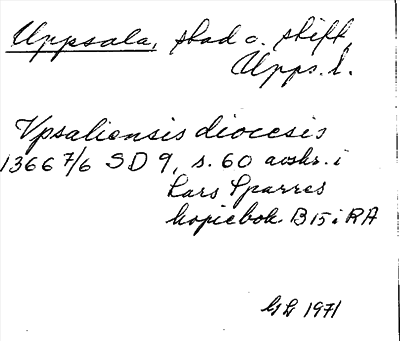 Uppsala, stad o. stift,
Upps. l.
Vpsaliensis diocesis
1366 7/6 SD 9, s. 60 avskr. i
Lars Sparres
kopiebok B 15 i RA
GL 1971